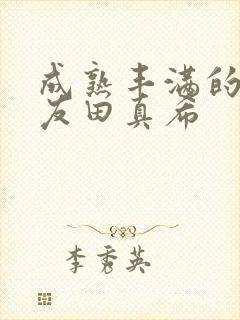 成熟丰满的
友田真希
李秀英